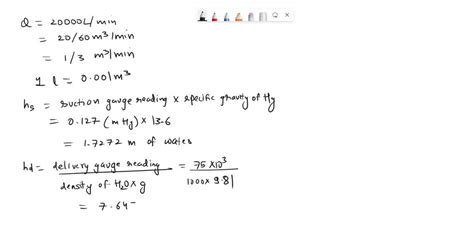 Q = 20000L/min
= 20/60 m³/min
= 1/3 m³/min
1 l = 0.001m³
hs = suction gauge reading × specific gravity of Hg
= 0.127 (m Hg) × 13.6
= 1.7272 m of water
hd = delivery gauge reading / density of H₂O × g = 75 × 10³ / 1000 × 9.81
= 7.64-